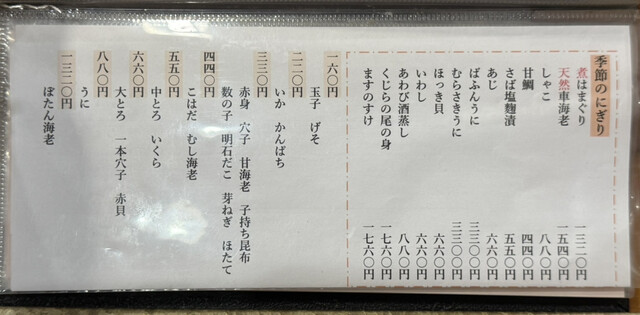 季節のにぎり
煮はまぐり 一三二〇円
天然車海老 一五四〇円
しゃこ 八八〇円
甘鯛 四四〇円
さば塩麹漬 五五〇円
あじ 六六〇円
ばふんうに 三三〇〇円
むらさきうに 三三〇〇円
ほっき貝 六六〇円
いわし 六六〇円
あわび酒蒸し 八八〇円
くじらの尾の身 一七六〇円
ますのすけ 一七六〇円
一六〇円
玉子 げそ
二二〇円
いか かんぱち
三三〇円
赤身 穴子 甘海老 子持ち昆布
数の子 明石だこ 芽ねぎ ほたて
四四〇円
こはだ むし海老
五五〇円
中とろ いくら
六六〇円
大とろ 一本穴子 赤貝
八八〇円
うに
一三二〇円
ぼたん海老